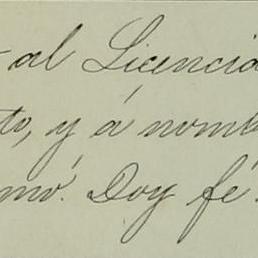 al Licencia
to, y á nomb
mó. Doy fé.